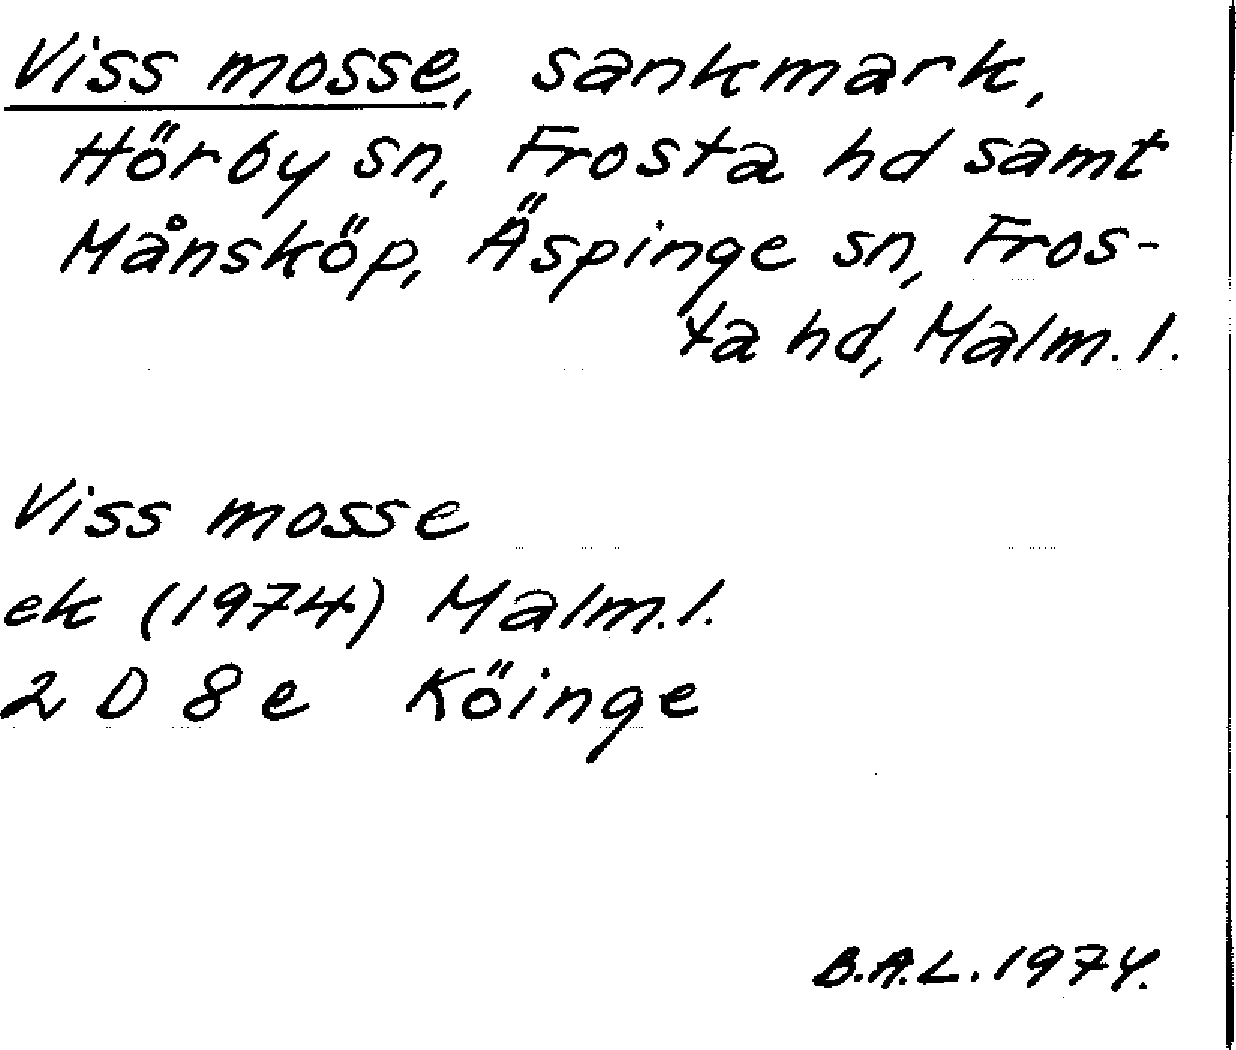 Viss mosse, sankmark,
Hörby sn, Frosta hd samt
Månsköp, Äspinge sn, Fros-
ta hd, Malm. l.
Viss mosse
ek (1974) Malm. l.
2 D 8 e Köinge
B.A.L. 1974.